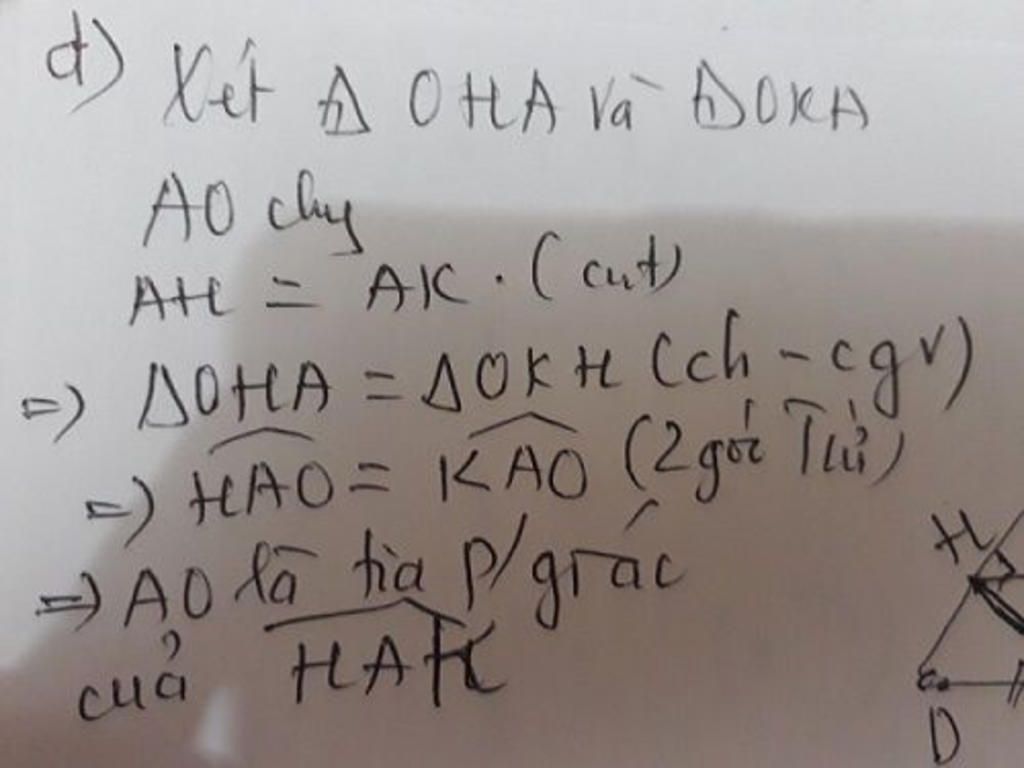 d) Xét Δ OHA và ΔOKA
AO chg
AH = AK . (cmt)
=) ΔOHA = ΔOKH (ch - cgv)
=) HAO = KAO (2 góc Tư)
=) AO là tia p/giác
của HAK
H
D